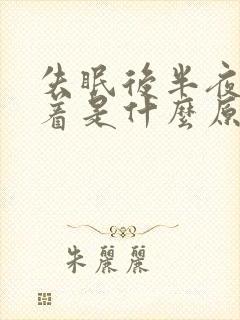 失眠後半夜
着是什麼原
朱麗麗